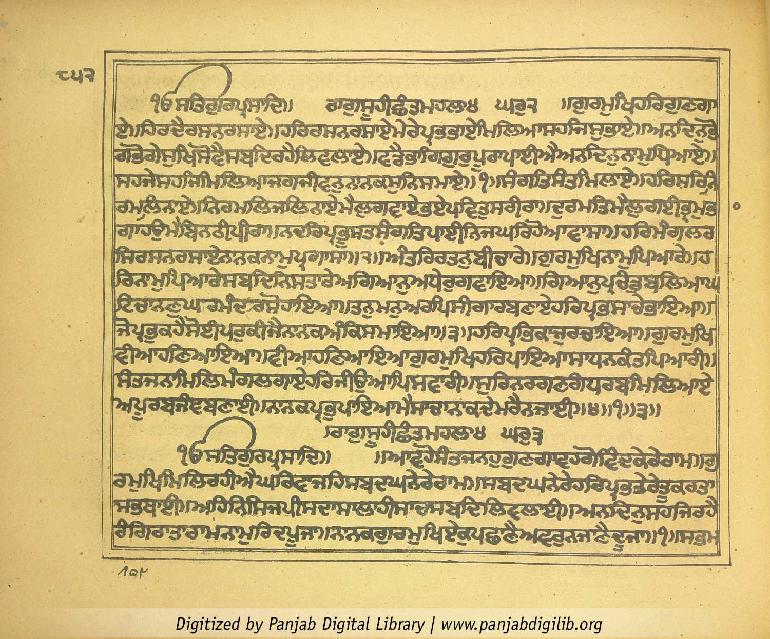 ੮੫੨
ੴਸਤਿਗੁਰਪ੍ਰਸਾਦਿ॥ ਰਾਗੁਸੂਹੀਛੰਤਮਹਲਾ੪ ਘਰੁ੨ ॥ਗੁਰਮੁਖਿਹਰਿਗੁਣਗਾ
ਏ॥ਹਿਰਦੈਰਸਨਰਸਾਏ॥ਹਰਿਰਸਨਰਸਾਏਮੇਰੇਪ੍ਰਭਭਾਏਮਿਲਿਆਸਹਜਿਸੁਭਾਏ॥ਅਨਦਿਨੁਭੋ
ਗਭੋਗੇਸੁਖਿਸੋਵੈਸਬਦਿਰਹੈਲਿਵਲਾਏ॥ਵਡੈਭਾਗਿਗੁਰੁਪੂਰਾਪਾਈਐਅਨਦਿਨੁਨਾਮੁਧਿਆਏ॥
ਸਹਜੇਸਹਜਿਮਿਲਿਆਜਗਜੀਵਨੁਨਾਨਕਸੁੰਨਿਸਮਾਏ॥੧॥ਸੰਗਤਿਸੰਤਮਿਲਾਏ॥ਹਰਿਸਰਿਨਿ
ਰਮਲਿਨਾਏ॥ਨਿਰਮਲਿਜਲਿਨਾਏਮੈਲੁਗਵਾਏਭਏਪਵਿਤੁਸਰੀਰਾ॥ਦੁਰਮਤਿਮੈਲੁਗਈਭ੍ਰਮੁਭਾ
ਗਾਹਉਮੈਬਿਨਠੀਪੀਰਾ॥ਨਦਰਿਪ੍ਰਭੂਸਤਸੰਗਤਿਪਾਈਨਿਜਘਰਿਹੋਆਵਾਸਾ॥ਹਰਿਮੰਗਲਰ
ਸਿਰਸਨਰਸਾਏਨਾਨਕਨਾਮੁਪ੍ਰਗਾਸਾ॥੨॥ਅੰਤਰਿਰਤਨੁਬੀਚਾਰੇ॥ਗੁਰਮੁਖਿਨਾਮੁਪਿਆਰੇ॥ਹ
ਰਿਨਾਮੁਪਿਆਰੇਸਬਦਿਨਿਸਤਾਰੇਅਗਿਆਨੁਅਧੇਰੁਗਵਾਇਆ॥ਗਿਆਨੁਪ੍ਰਚੰਡੁਬਲਿਆਘ
ਟਿਚਾਨਣੁਘਰਮੰਦਰਸੋਹਾਇਆ॥ਤਨੁਮਨੁਅਰਪਿਸੀਗਾਰਬਣਾਏਹਰਿਪ੍ਰਭਸਾਚੇਭਾਇਆ॥
ਜੋਪ੍ਰਭੁਕਹੈਸੋਈਪਰੁਕੀਜੈਨਾਨਕਅੰਕਿਸਮਾਇਆ॥੩॥ਹਰਿਪ੍ਰਭਿਕਾਜੁਰਚਾਇਆ॥ਗੁਰਮੁਖਿ
ਵੀਆਹਣਿਆਇਆ॥ਵੀਆਹਣਿਆਇਆਗੁਰਮੁਖਿਹਰਿਪਾਇਆਸਾਧਨਕੰਤਪਿਆਰੀ॥
ਸੰਤਜਨਾਮਿਲਿਮੰਗਲਗਾਏਹਰਿਜੀਉਆਪਿਸਵਾਰੀ॥ਸੁਰਿਨਰਗਣਗੰਧਰਬਮਿਲਿਆਏ
ਅਪੂਰਬਜੰਞਬਣਾਈ॥ਨਾਨਕਪ੍ਰਭੁਪਾਇਆਮੈਸਾਚਾਨਾਕਦੇਮਰੈਨਜਾਈ॥੪॥੧॥੩॥
ਰਾਗੁਸੂਹੀਛੰਤਮਹਲਾ੪ ਘਰੁ੩
ੴਸਤਿਗੁਰਪ੍ਰਸਾਦਿ॥ ॥ਆਵਹੋਸੰਤਜਨਹੁਗੁਣਗਾਵਹਗੋਵਿੰਦਕੇਰੇਰਾਮ॥ਗੁ
ਰਮੁਖਿਮਿਲਿਰਹੀਐਘਰਿਵਾਜਹਿਸਬਦਘਨੇਰੇਰਾਮ॥ਸਬਦਘਨੇਰੇਹਰਿਪ੍ਰਭਤੇਰੇਤੂਕਰਤਾ
ਸਭਥਾਈ॥ਅਹਿਨਿਸਿਜਪੀਸਦਾਸਾਲਾਹੀਸਾਚਸਬਦਿਲਿਵਲਾਈ॥ਅਨਦਿਨੁਸਹਜਿਰਹੈ
ਰੰਗਿਰਾਤਾਰਾਮਨਾਮੁਰਿਦਪੂਜਾ॥ਨਾਨਕਗੁਰਮੁਖਿਏਕੁਪਛਾਣੈਅਵਰੁਨਜਾਣੈਦੂਜਾ॥੧॥ਸਭਮ
Digitized by Panjab Digital Library | www.panjabdigilib.org